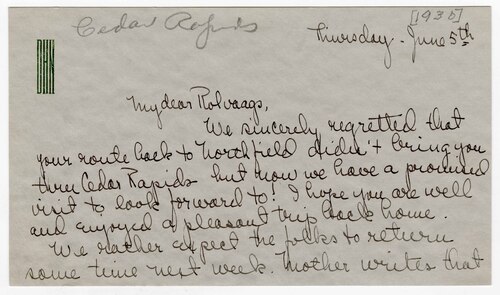 Cedar Rapids
[1930]
Thursday - June 5th
My dear Rolvaags,
We sincerely regretted that
your route back to Northfield didn't bring you
thru Cedar Rapids but now we have a promised
visit to look forward to! I hope you are well
and enjoyed a pleasant trip back home.
We rather expect the folks to return
some time next week. Mother writes that